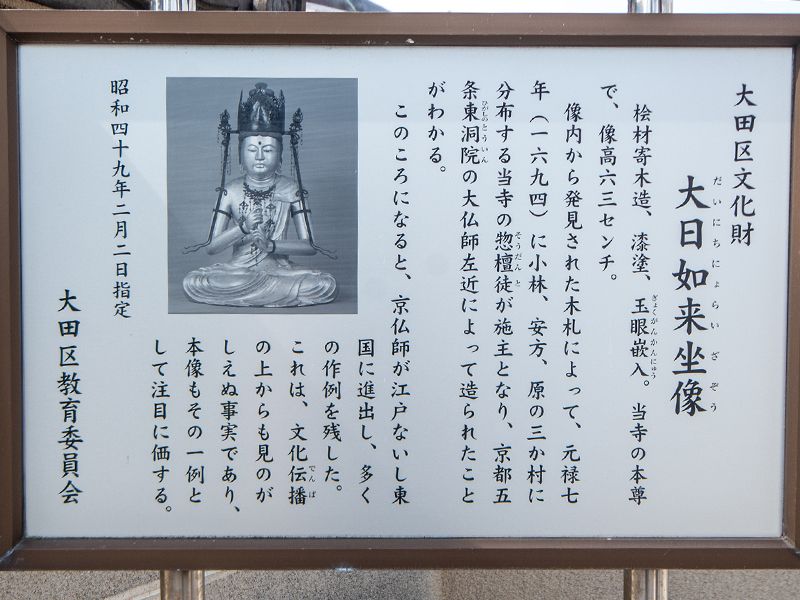 大田区文化財
大日如来坐像
だいにちにょらいざぞう
桧材寄木造、漆塗、玉眼嵌入。当寺の本尊
ぎょくがんかんにゅう
で、像高六三センチ。
像内から発見された木札によって、元禄七
年（一六九四）に小林、安方、原の三か村に
分布する当寺の惣檀徒が施主となり、京都五
そうだんと
条東洞院の大仏師左近によって造られたこと
ひがしのとういん
がわかる。
このころになると、京仏師が江戸ないし東
国に進出し、多く
の作例を残した。
これは、文化伝播
でんぱ
の上からも見のが
しえぬ事実であり、
本像もその一例と
して注目に価する。
昭和四十九年二月二日指定
大田区教育委員会